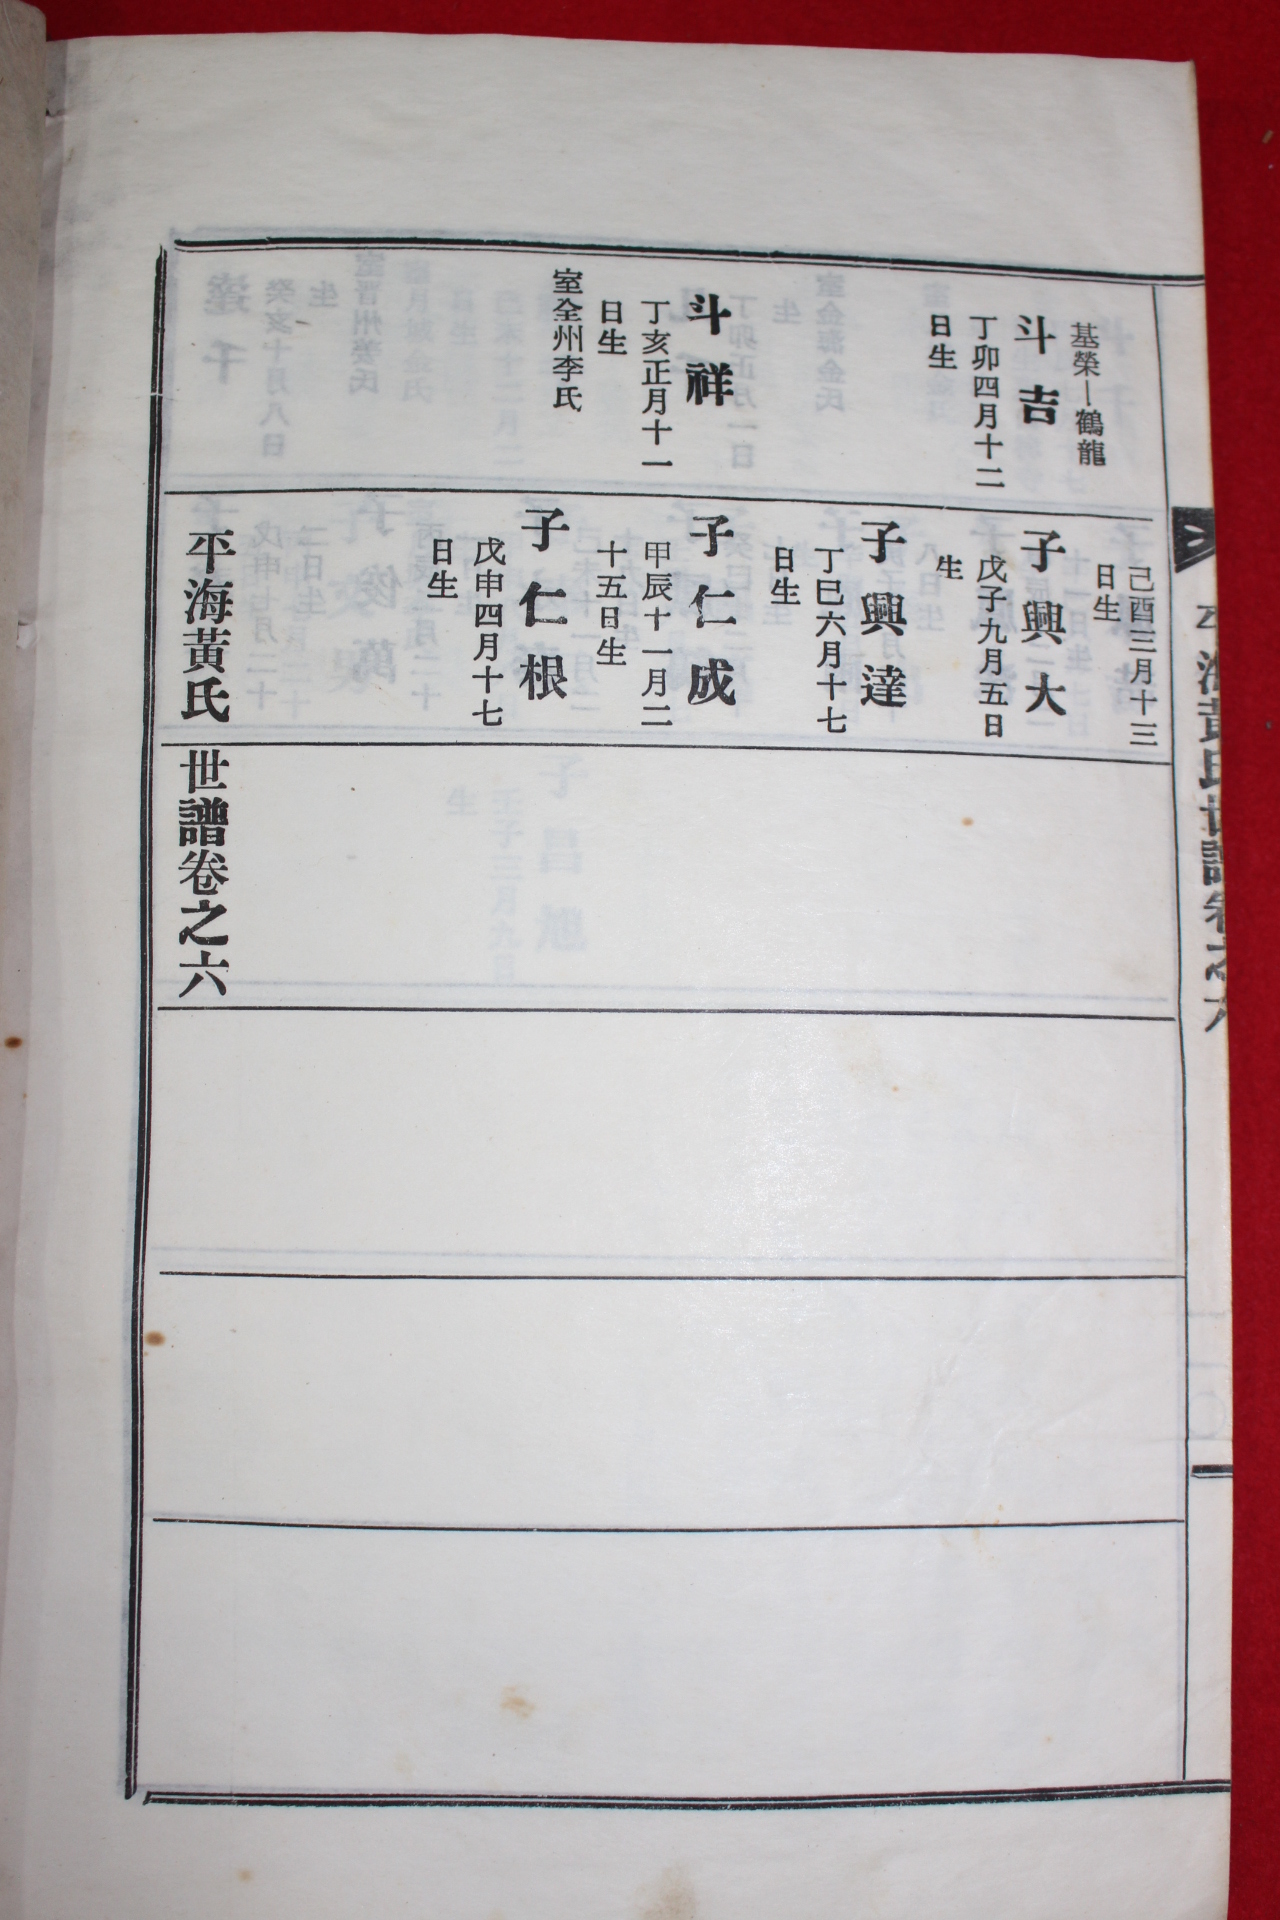 基榮一鶴龍
斗吉
丁卯四月十二
日生
斗祥
丁亥正月十一
日生
室全州李氏
己酉三月十三
日生
子興大
戊子九月五日
生
子興達
丁巳六月十七
日生
子仁成
甲辰十一月二
十五日生
子仁根
戊申四月十七
日生
平海黃氏世譜卷之六
平海黃氏世譜卷之六